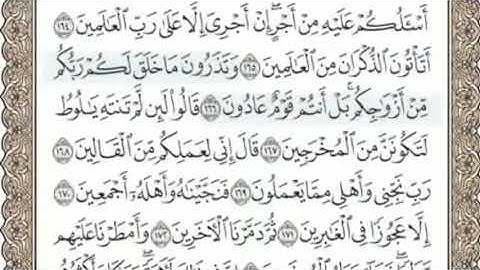 أَسْـَٔلُكُمْ عَلَيْهِ مِنْ أَجْرٍ ۖ إِنْ أَجْرِىَ إِلَّا عَلَىٰ رَبِّ ٱلْعَـٰلَمِينَ ١٦٤
أَتَأْتُونَ ٱلذُّكْرَانَ مِنَ ٱلْعَـٰلَمِينَ ١٦٥ وَتَذَرُونَ مَا خَلَقَ لَكُمْ رَبُّكُم
مِّنْ أَزْوَٰجِكُم ۚ بَلْ أَنتُمْ قَوْمٌ عَادُونَ ١٦٦ قَالُوا۟ لَئِن لَّمْ تَنتَهِ يَـٰلُوطُ
لَتَكُونَنَّ مِنَ ٱلْمُخْرَجِينَ ١٦٧ قَالَ إِنِّى لِعَمَلِكُم مِّنَ ٱلْقَالِينَ ١٦٨
رَبِّ نَجِّنِى وَأَهْلِى مِمَّا يَعْمَلُونَ ١٦٩ فَنَجَّيْنَـٰهُ وَأَهْلَهُۥٓ أَجْمَعِينَ ١٧٠
إِلَّا عَجُوزًا فِى ٱلْغَـٰبِرِينَ ١٧١ ثُمَّ دَمَّرْنَا ٱلْـَٔاخَرِينَ ١٧٢ وَأَمْطَرْنَا عَلَيْهِم